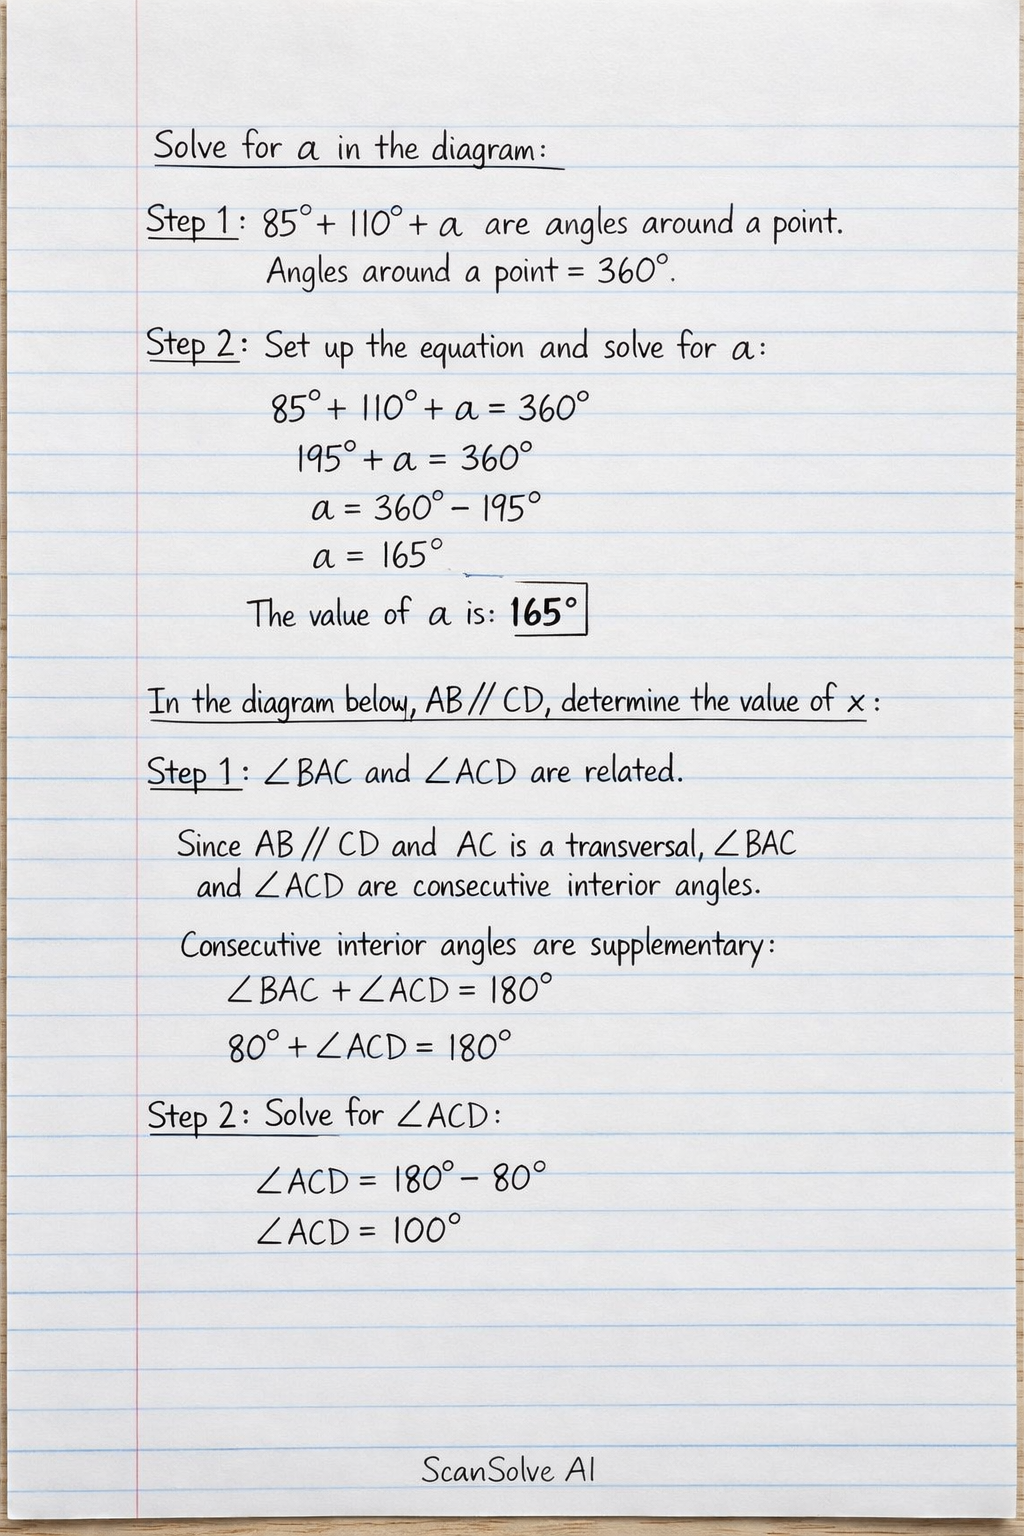 Solve for a in the diagram:
Step 1: 85° + 110° + a are angles around a point.
Angles around a point = 360°.
Step 2: Set up the equation and solve for a:
85° + 110° + a = 360°
195° + a = 360°
a = 360° − 195°
a = 165°
The value of a is: 165°
In the diagram below, AB // CD, determine the value of x:
Step 1: ∠BAC and ∠ACD are related.
Since AB // CD and AC is a transversal, ∠BAC
and ∠ACD are consecutive interior angles.
Consecutive interior angles are supplementary:
∠BAC + ∠ACD = 180°
80° + ∠ACD = 180°
Step 2: Solve for ∠ACD:
∠ACD = 180° − 80°
∠ACD = 100°
ScanSolve AI